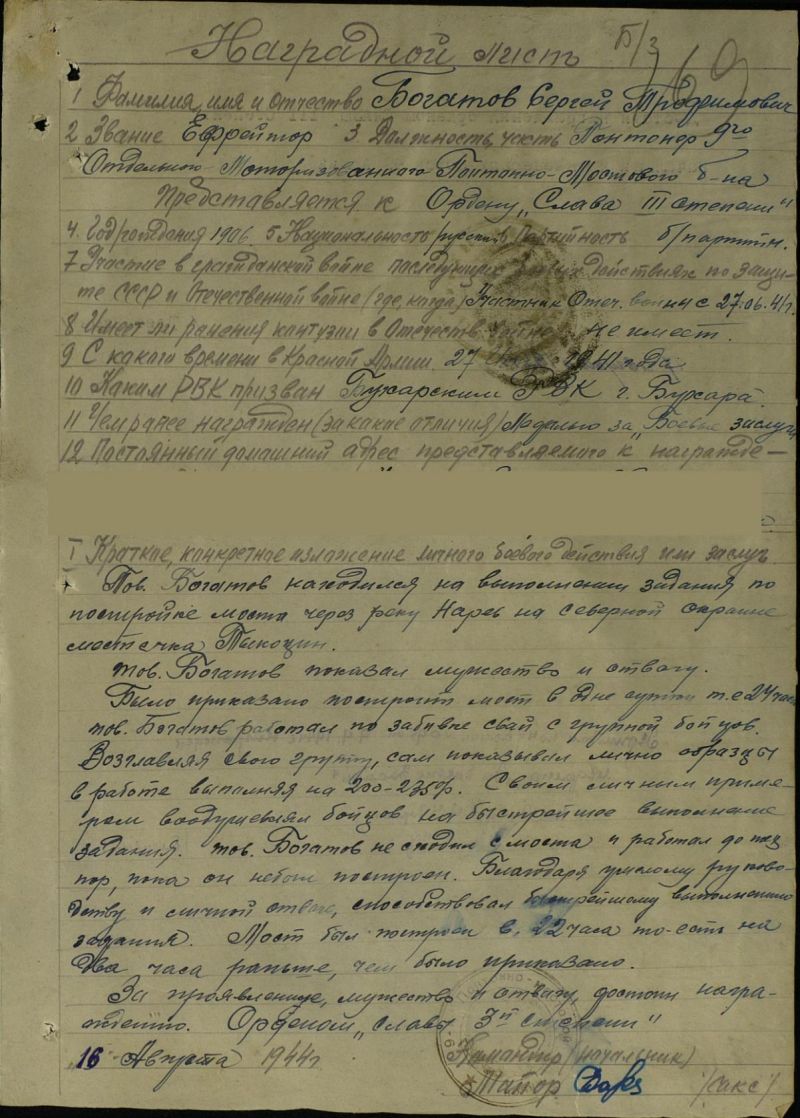 Наградной листъ
Б/з 69
1 Фамилия, имя и отчество Богатов Сергей Трофимович
2 Звание Ефрейтор 3 Должность, часть Понтонер 9го
Отдельного Моторизованного Понтонно-Мостового б-на
Представляется к Ордену „Слава III степени"
4. Год рождения 1906. 5 Национальность русский Партийность б/партийн.
7 Участие в гражданской войне последующих боевых действиях по защи-
те СССР и Отечественной войне (где, когда) Участник Отеч. войны с 27.06.41г.
8 Имеет ли ранения контузии в Отечеств. войне не имеет.
9 С какого времени в Красной Армии 27 1941 года
10 Каким РВК призван Бухарским РВК г. Бухара
11 Чем ранее награжден (за какие отличия) Медалью за „Боевые заслуги
12 Постоянный домашний адрес представляемого к награжде-
I Краткое, конкретное изложение личного боевого действия или заслуг
Тов. Богатов находился на выполнении задания по
постройке моста через реку Нарев на северной окраине
местечка Тыкоцин.
тов. Богатов показал мужество и отвагу.
Было приказано построить мост в одне сутки т.е 24 часа
тов. Богатов работал по забивке свай с группой бойцов.
Возглавляя свою группу, сам показывал лично образцы
в работе выполняя на 200-235%. Своим личным приме-
ром воодушевлял бойцов на быстрейшое выполнение
задания. тов. Богатов не сходил с моста и работал до тех
пор, пока он небыл построен. Благодаря умелому руково-
дству и личной отваге, способствовал быстрейшому выполнению
задания. Мост был построен в 22 часа то-есть на
два часа раньше, чем было приказано.
За проявленное, мужество и отвагу, достоин награ-
ждению. Орденом „Славы 3й степени"
16 Августа 1944г Командир (начальник)
Майор /Сакс/